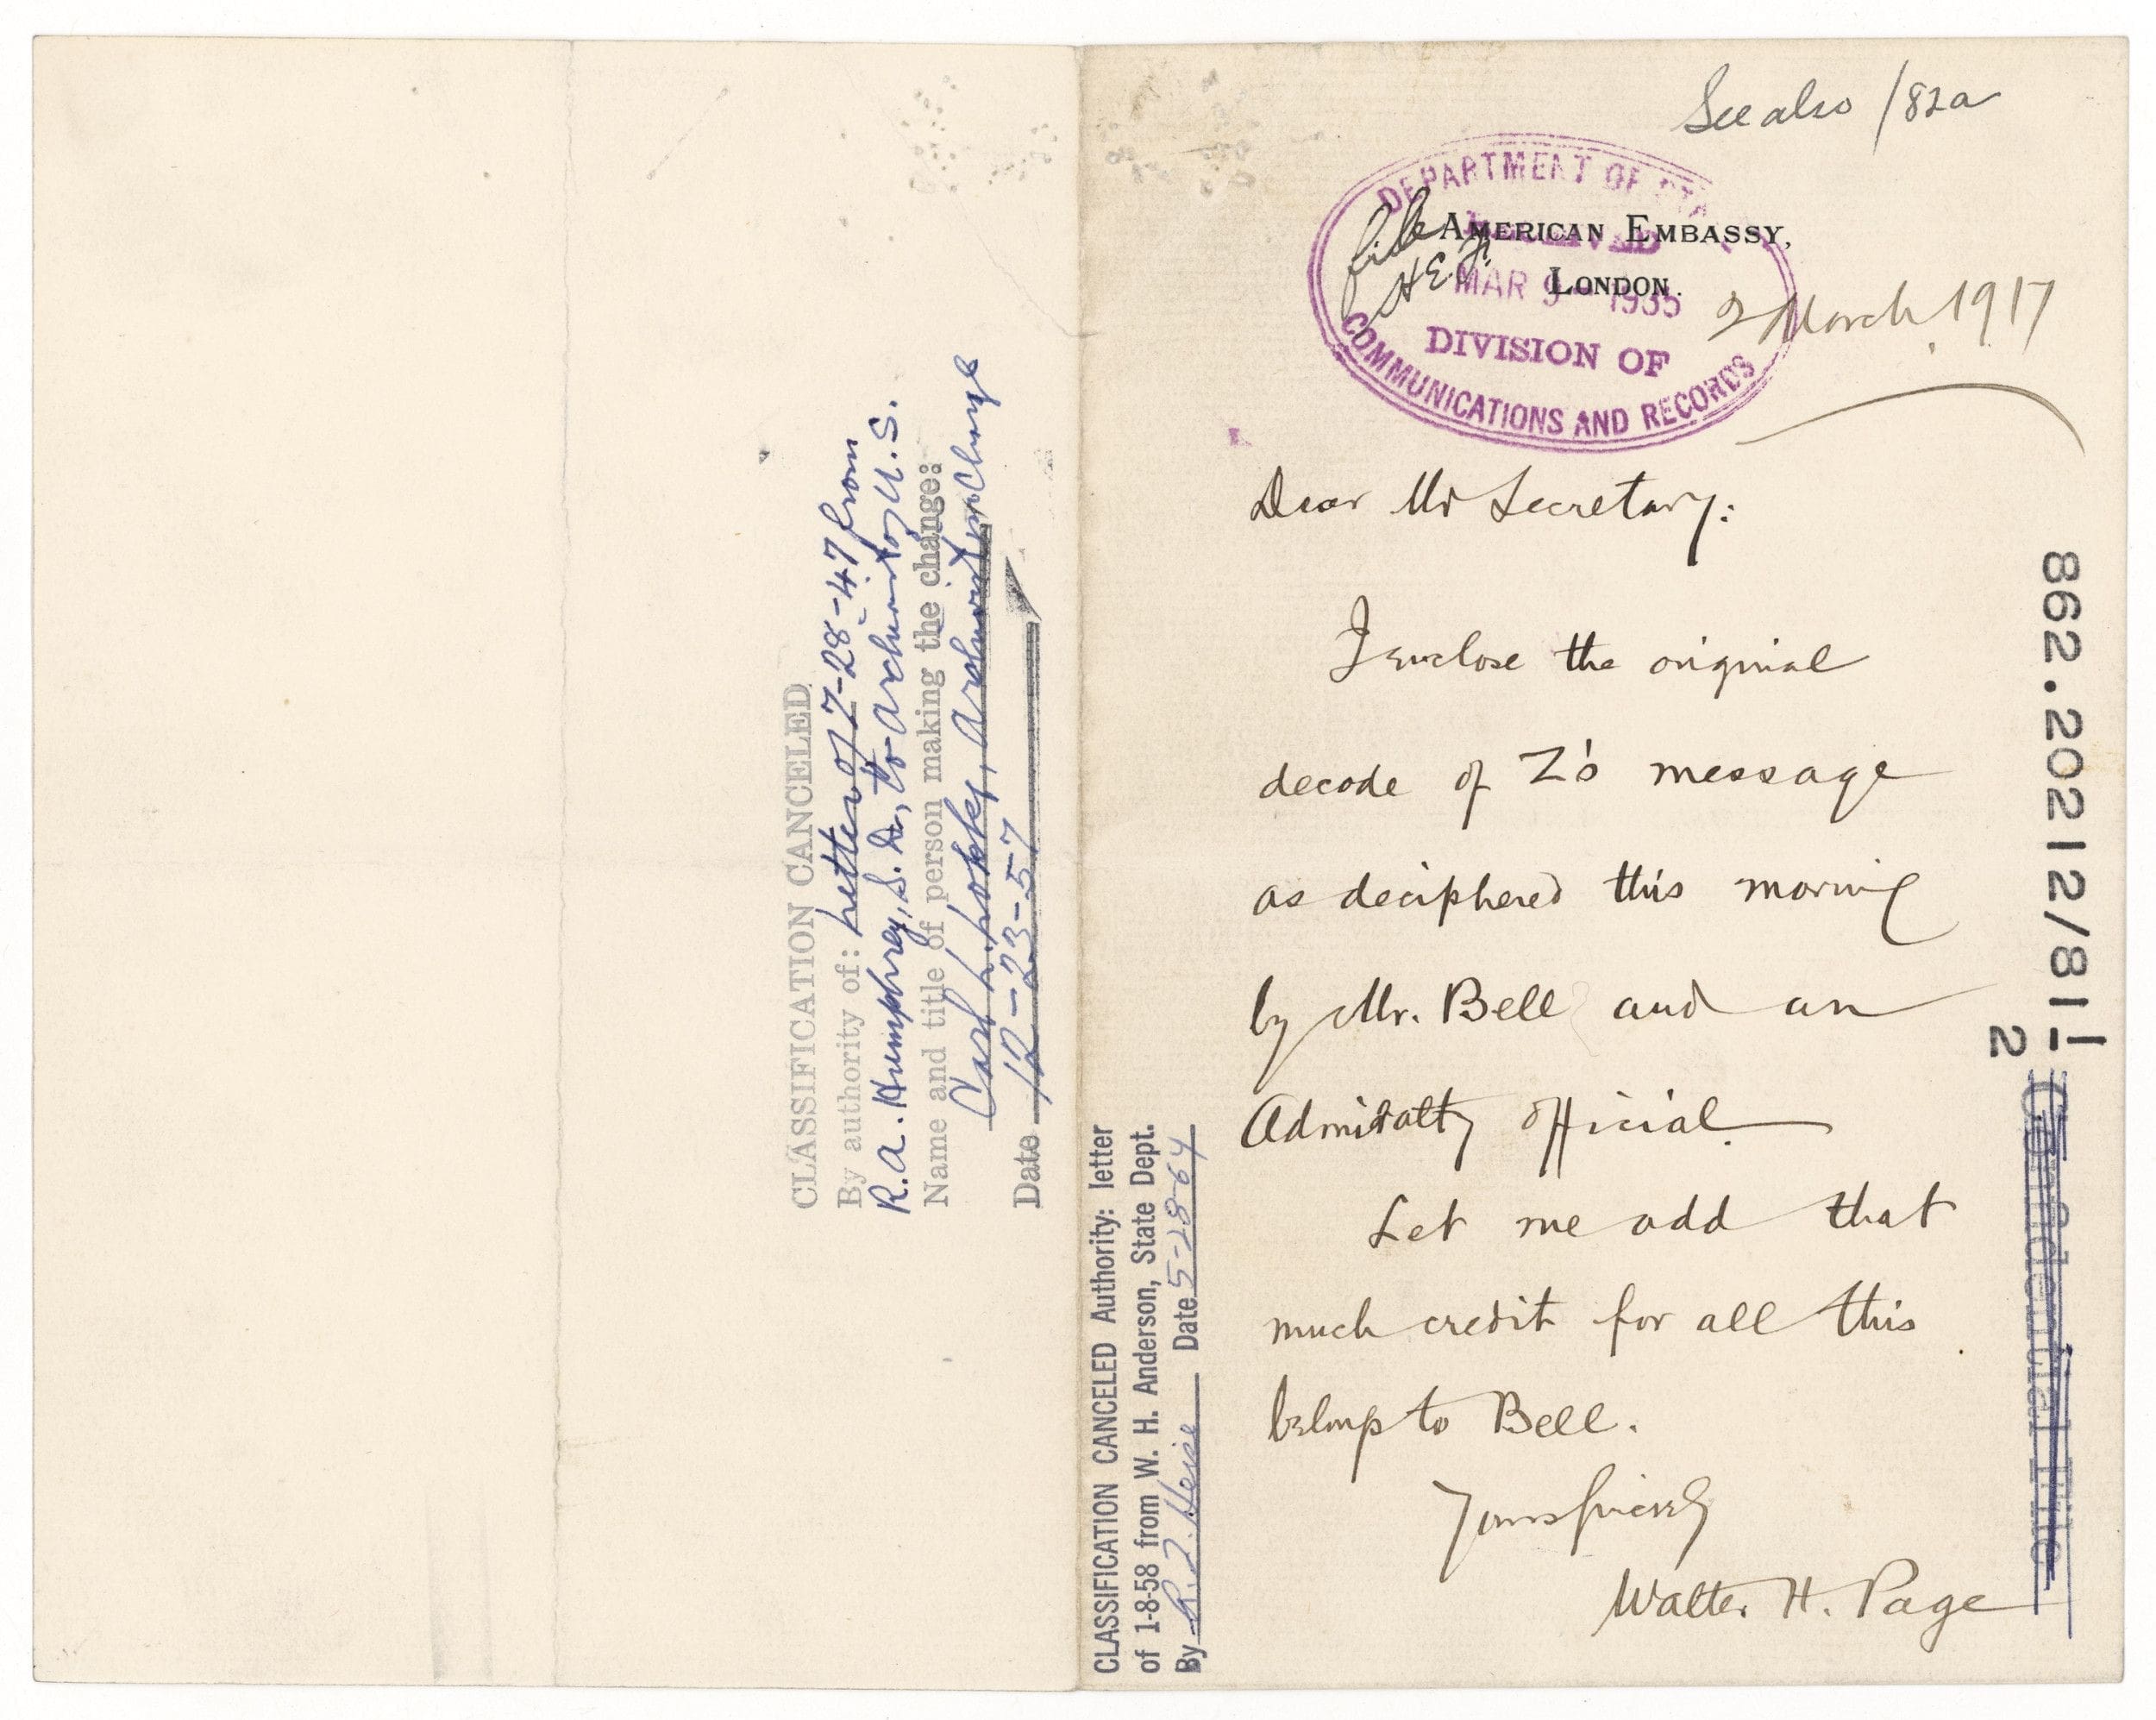 CLASSIFICATION CANCELED
By authority of: letter of 7-28-47 from
R.A. Humphrey, S.D., to Archivist of U.S.
Name and title of person making the change:
Carl L. Lokke, Archivist in Charge
Date 12-23-57
CLASSIFICATION CANCELED Authority: letter
of 1-8-58 from W. H. Anderson, State Dept.
By Date 5-28-64
See also /82a
DEPARTMENT OF STATE
RECEIVED
MAR 9 - 1935
DIVISION OF
COMMUNICATIONS AND RECORDS
file
AMERICAN EMBASSY,
LONDON.
2 March, 1917
Dear Mr Secretary:
I enclose the original
decode of Z's message
as deciphered this morning
by Mr. Bell and an
Admiralty official.
Let me add that
much credit for all this
belongs to Bell.
Yours sincerely
Walter H. Page
862.20212/81
2
Confidential File